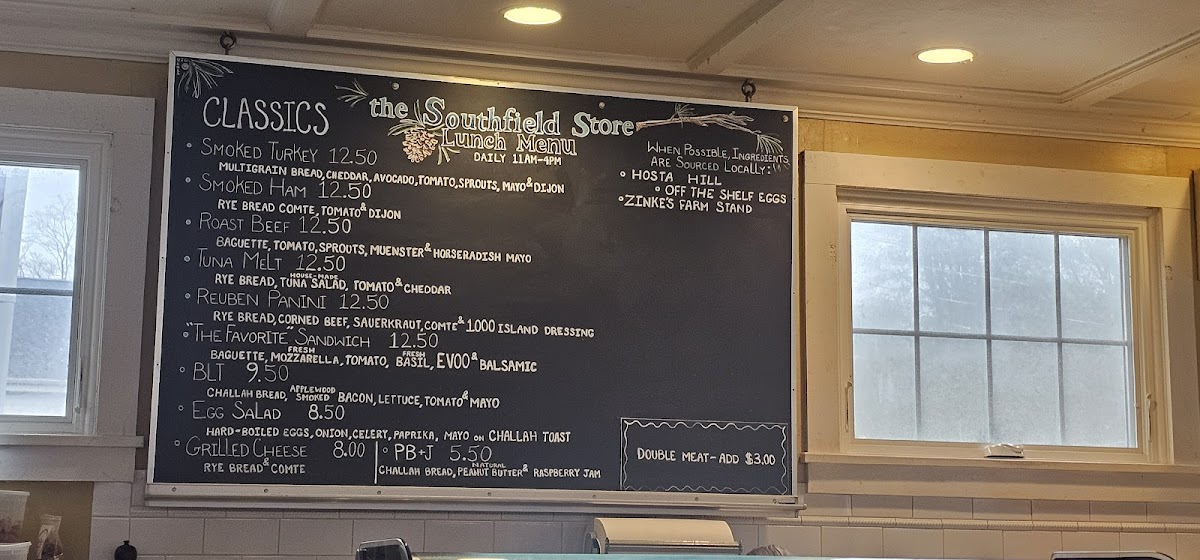 CLASSICS
the Southfield Store
Lunch Menu
DAILY 11AM-4PM
• SMOKED TURKEY 12.50
MULTIGRAIN BREAD, CHEDDAR, AVOCADO, TOMATO, SPROUTS, MAYO & DIJON
• SMOKED HAM 12.50
RYE BREAD COMTE, TOMATO & DIJON
• ROAST BEEF 12.50
BAGUETTE, TOMATO, SPROUTS, MUENSTER & HORSERADISH MAYO
• TUNA MELT 12.50
RYE BREAD, HOUSE-MADE TUNA SALAD, TOMATO & CHEDDAR
• REUBEN PANINI 12.50
RYE BREAD, CORNED BEEF, SAUERKRAUT, COMTE & 1,000 ISLAND DRESSING
• "THE FAVORITE" SANDWICH 12.50
BAGUETTE, FRESH MOZZARELLA, TOMATO, FRESH BASIL, EVOO & BALSAMIC
• BLT 9.50
CHALLAH BREAD, APPLEWOOD SMOKED BACON, LETTUCE, TOMATO & MAYO
• EGG SALAD 8.50
HARD-BOILED EGGS, ONION, CELERY, PAPRIKA, MAYO ON CHALLAH TOAST
• GRILLED CHEESE 8.00
RYE BREAD & COMTE
• PB+J 5.50
CHALLAH BREAD, NATURAL PEANUT BUTTER & RASPBERRY JAM
WHEN POSSIBLE, INGREDIENTS
ARE SOURCED LOCALLY:
• HOSTA HILL
• OFF THE SHELF EGGS
• ZINKE'S FARM STAND
DOUBLE MEAT-ADD $3.00